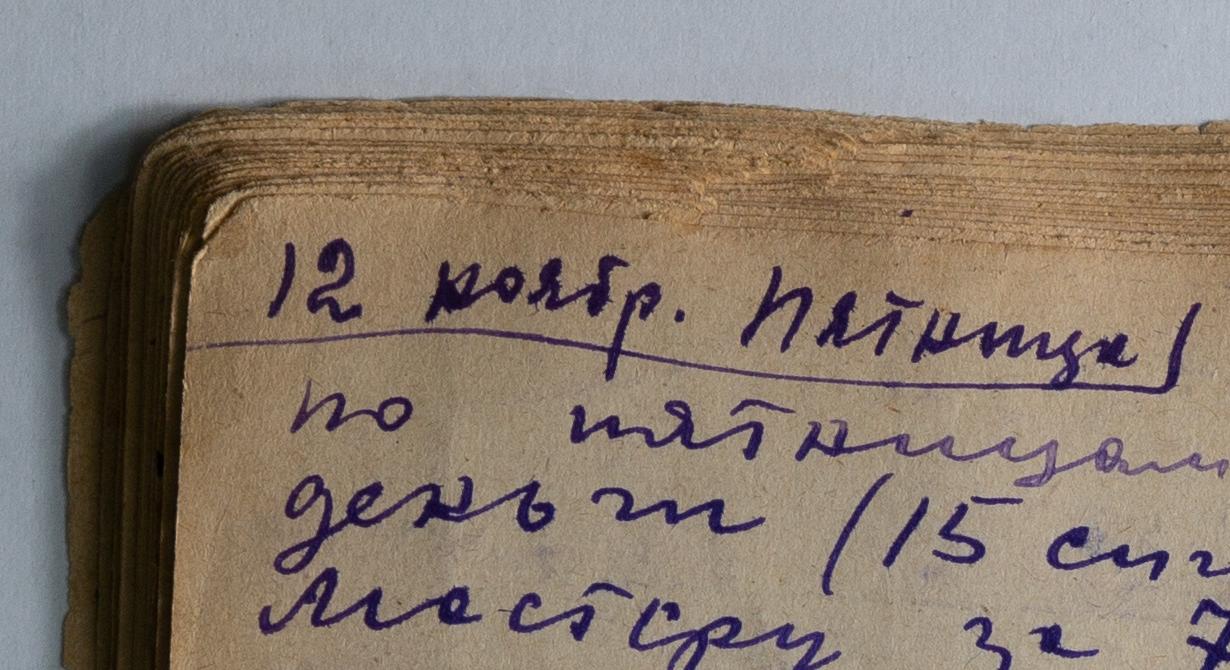 12 ноябр. Пятница
по пятницам
деньги (15 сиг
Мастеру за 7